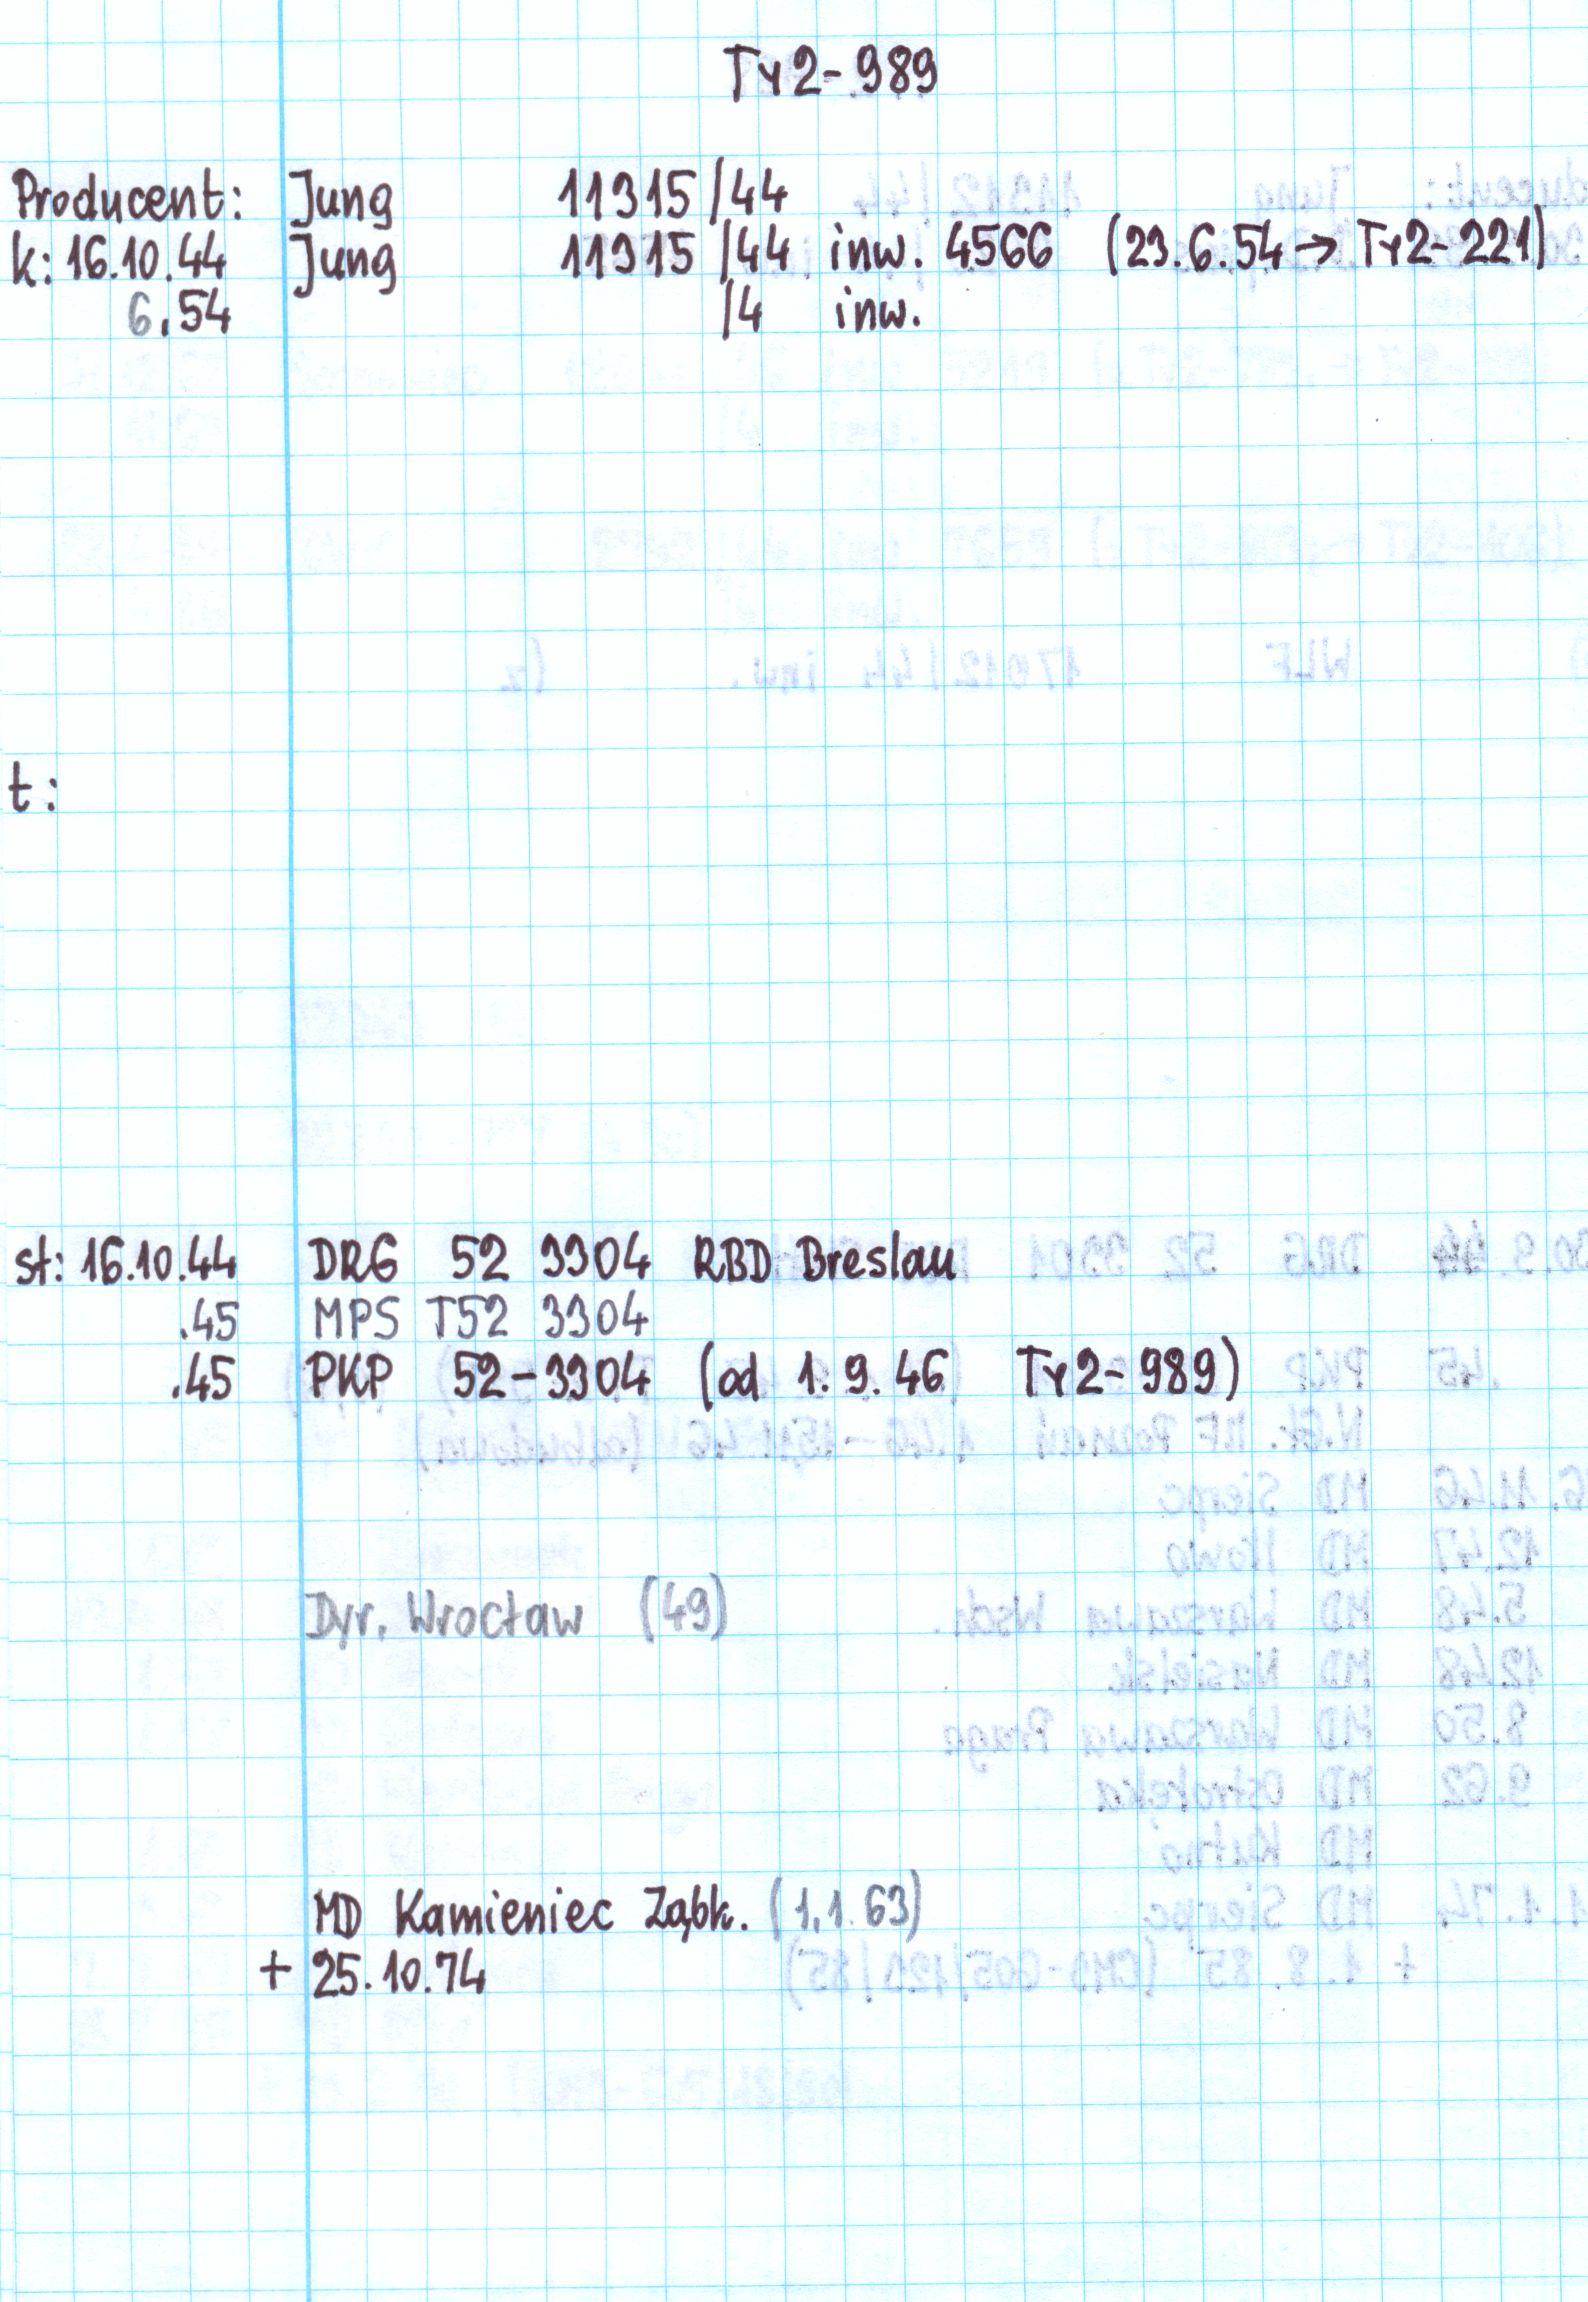 Ty2-989
Producent: Jung 11315/44
k: 16.10.44 Jung 11315/44 inw. 4566 (23.6.54 → Ty2-221)
6.54 /4 inw.
t:
st: 16.10.44 DRG 52 3304 RBD Breslau
.45 MPS T52 3304
.45 PKP 52-3304 (od 1.9.46 Ty2-989)
Dyr. Wrocław (49)
MD Kamieniec Ząbk. (1.1.63)
+ 25.10.74